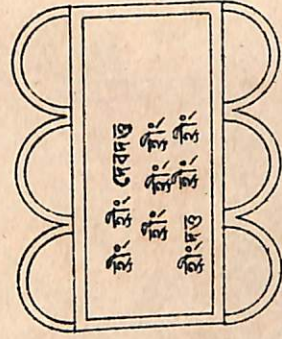 হ্রীং হ্রীং দেবদত্ত
হ্রীং হ্রীং হ্রীং
হ্রীংদত্ত হ্রীং হ্রীং